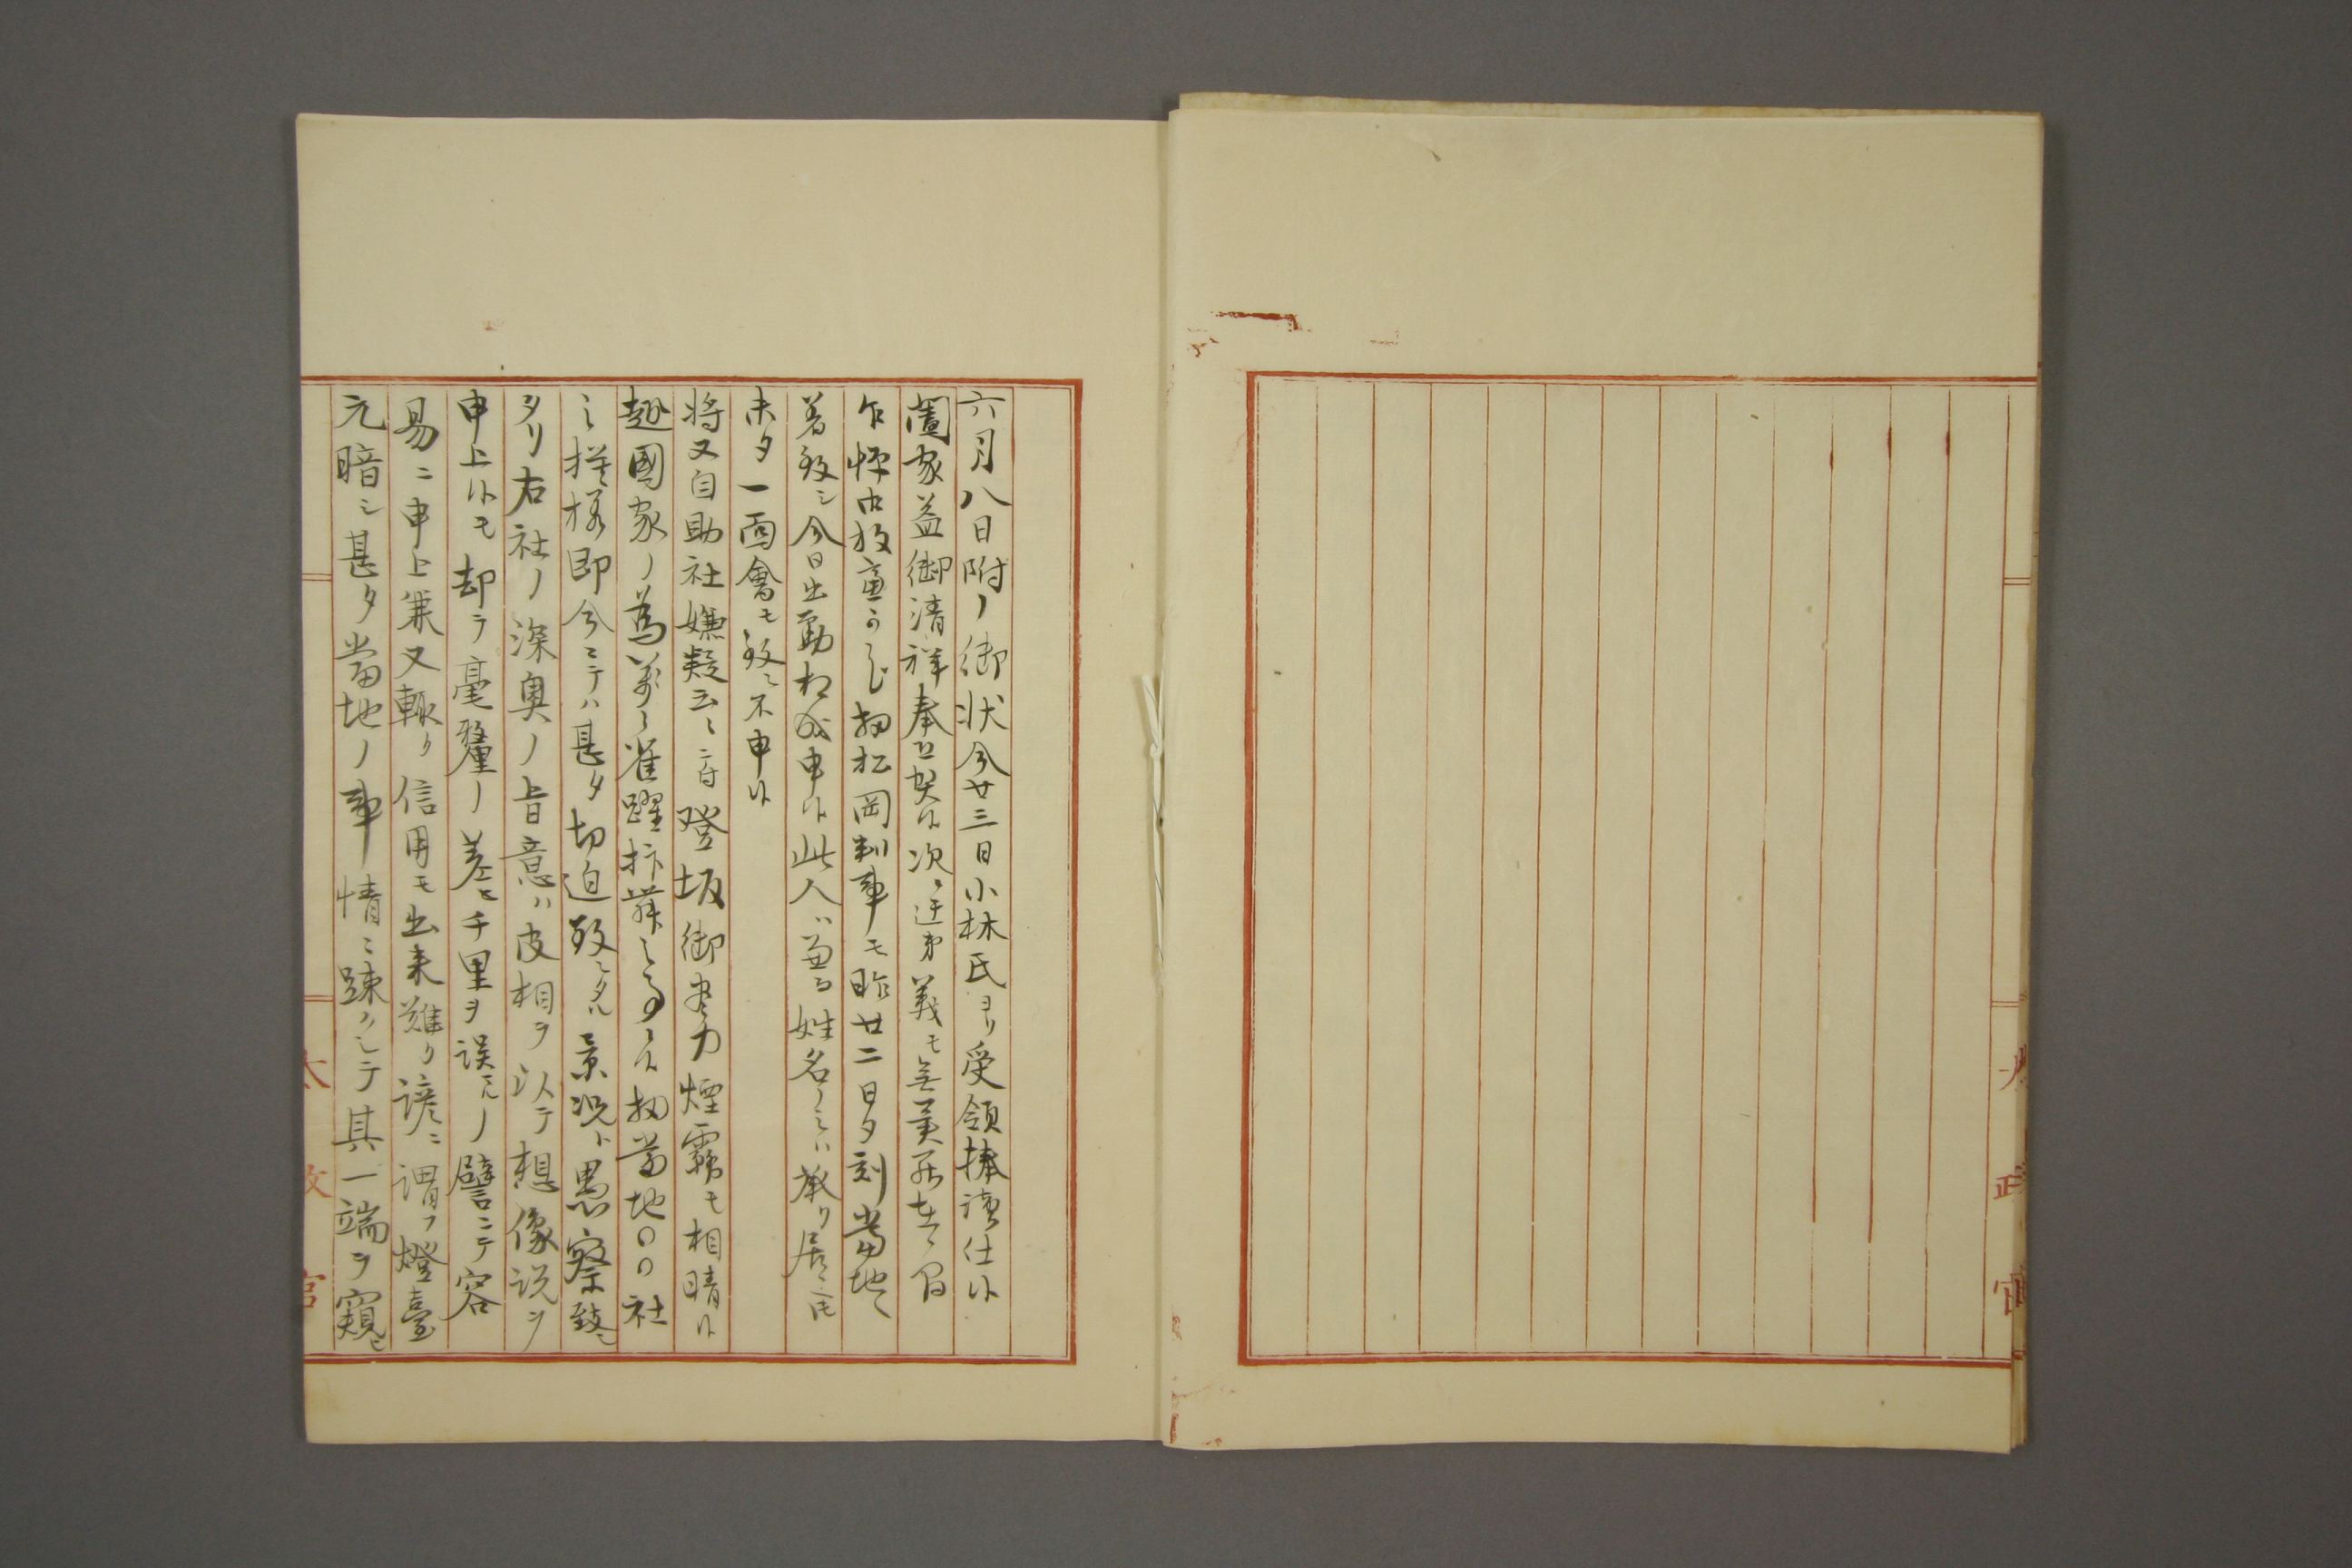 六月八日附ノ御状今廿三日小林氏ヨリ受領捧讀仕候
闔家益御清祥奉恐賀候次ニ迂弟義モ無異罷在候間
乍憚御放慮可被下候扨松岡判事モ昨廿二日夕刻當地ヘ
着致シ今日出勤相成申候此人ハ兼而姓名ノミハ承リ居候ヘ𪜈
未タ一面會モ致シ不申候
将又自助社嫌疑云々ニ付登坂御尽力煙霧モ相晴候
趣國家ノ為万々雀躍抃舞之事ニ候扨當地〇〇社
之模様即今ニテハ甚タ切迫致シタル景况ト愚察致シ
タリ右社ノ深奥ノ旨意ハ皮相ヲ以テ想像説ヲ
申上候モ却テ毫釐ノ差モ千里ヲ誤ルノ譬ニテ容
易ニ申上兼又輙ク信用モ出来難ク諺ニ謂フ燈臺
元暗シ甚タ當地ノ事情ニ疎クシテ其一端ヲ窺ヒ
太政官
太政官